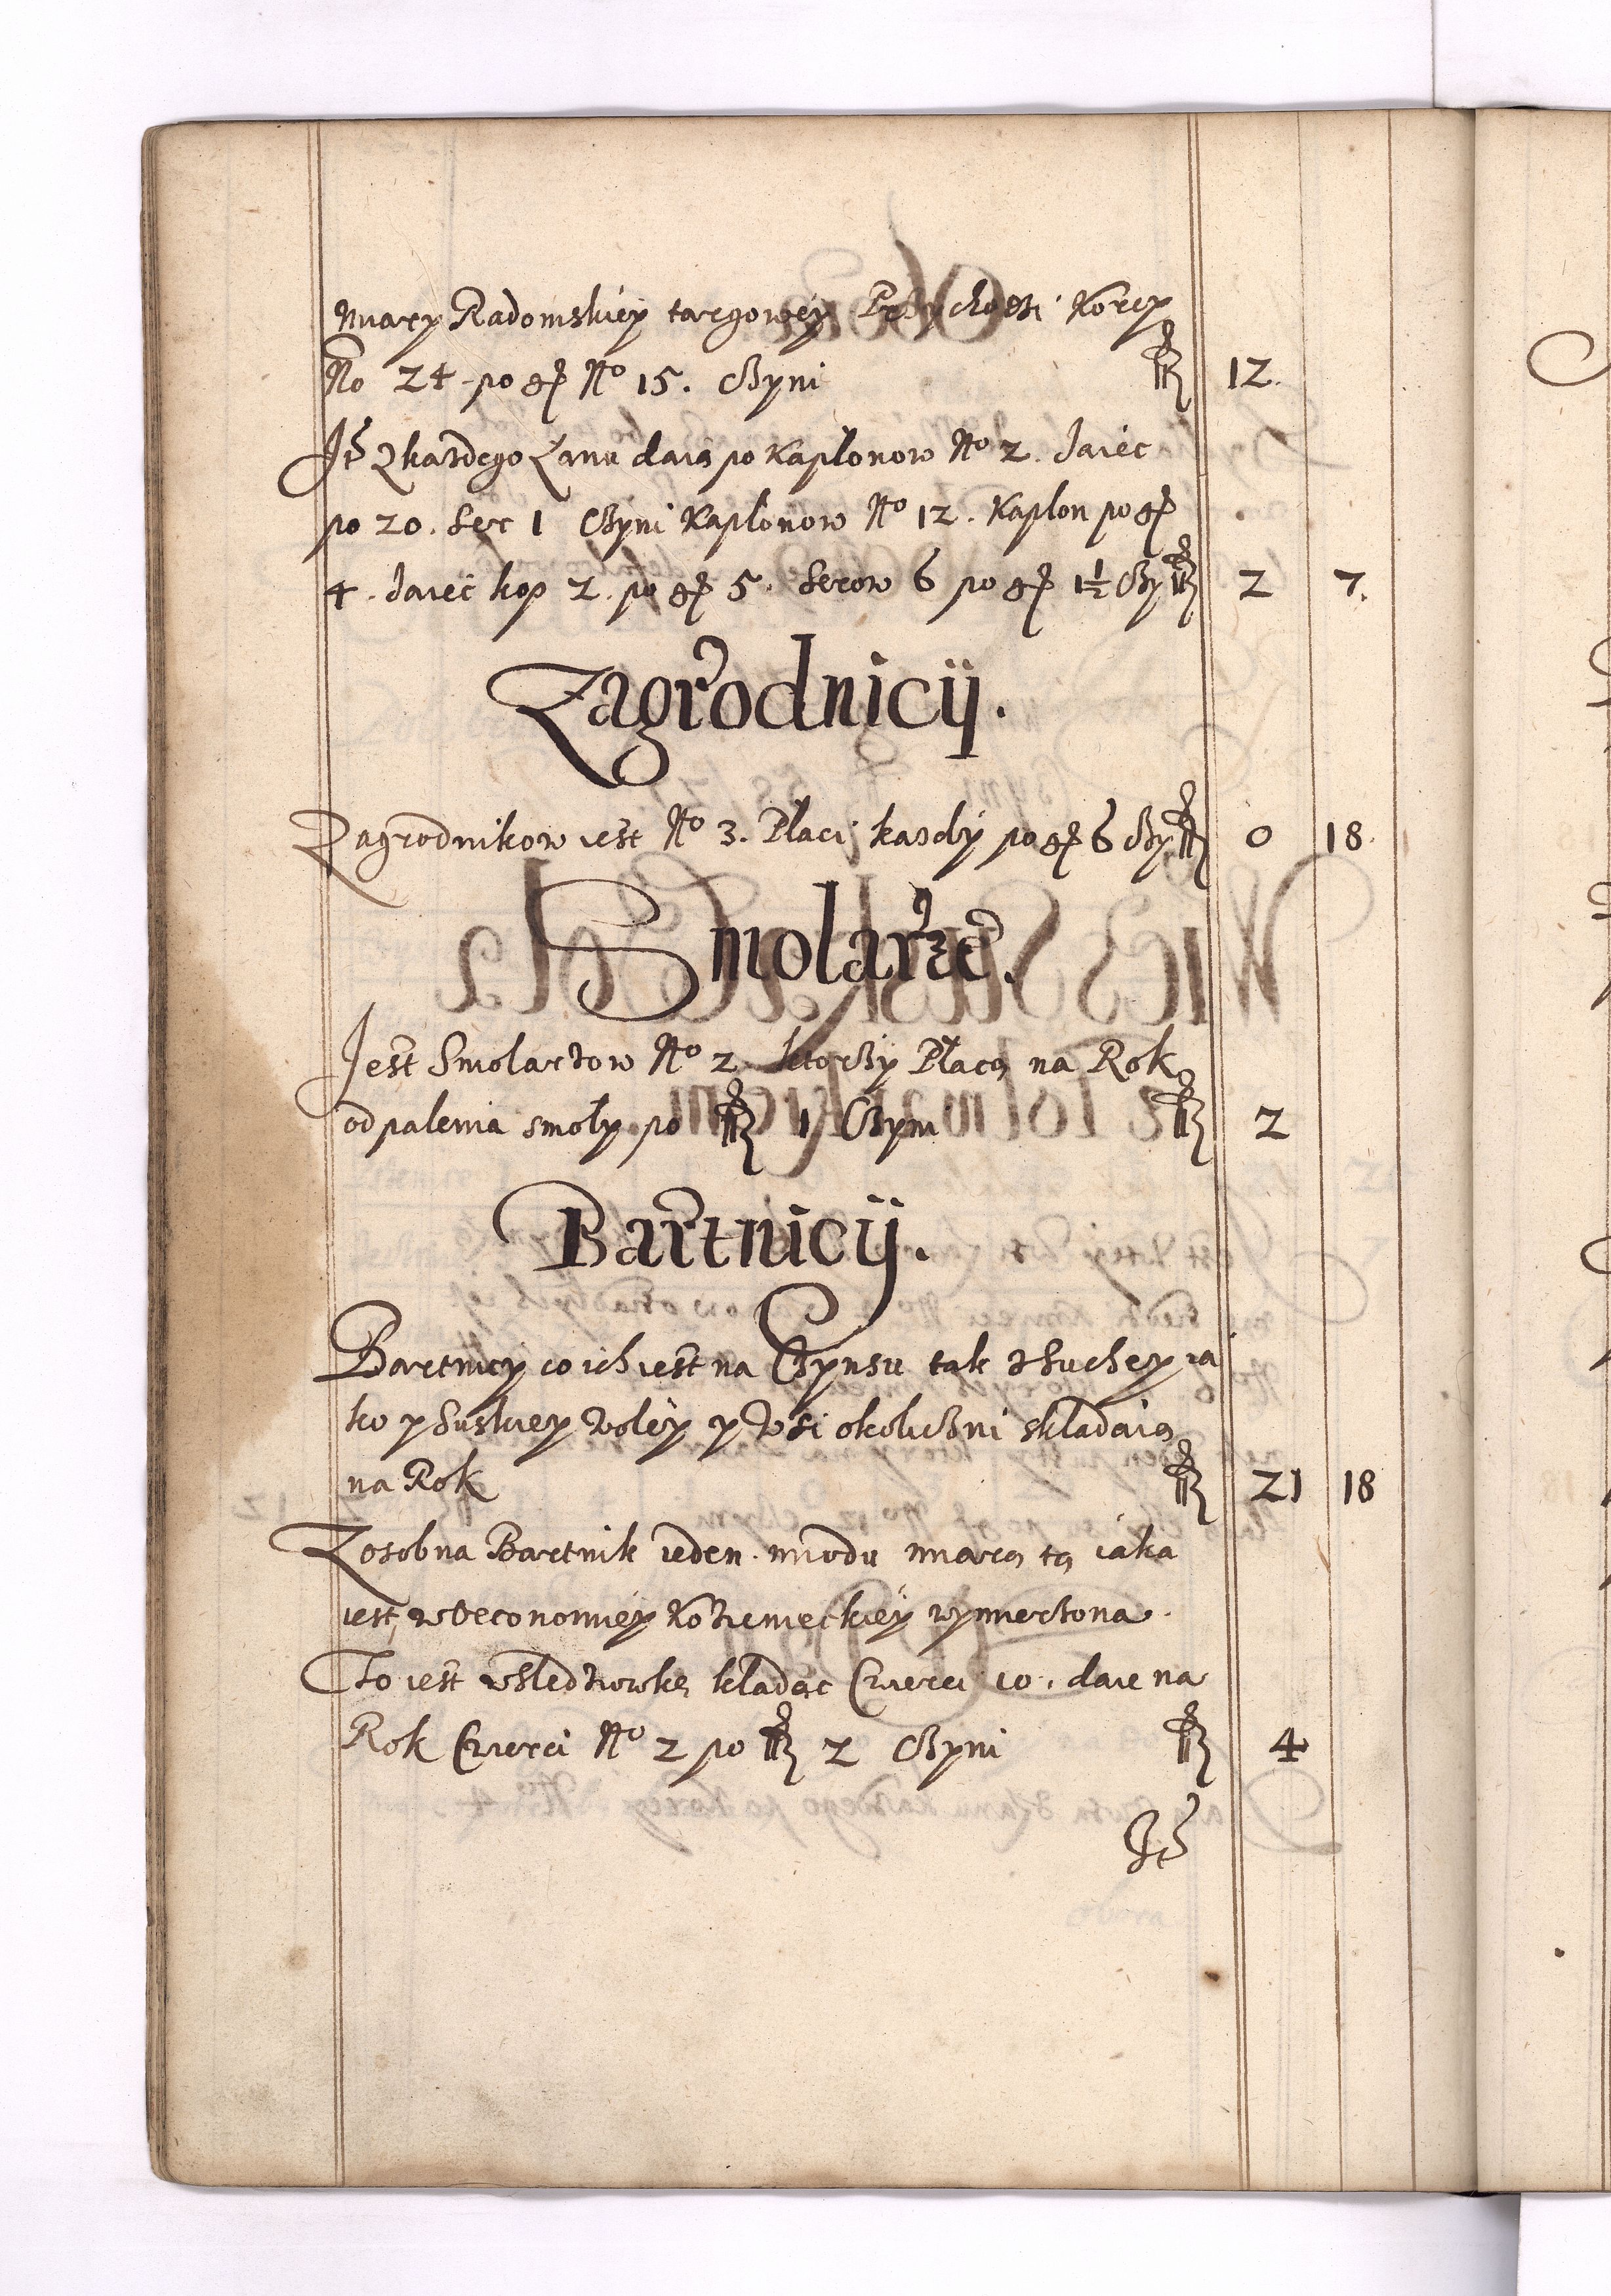 miary Radomskiey targowey Przychodzi Korcy
No 24 po gr No 15. Czyni fl 12.
It Zkazdego Łanu daią po Kapłonow No 2. Jaiec
po 20. Ser 1 Czyni Kapłonow No 12. Kapłon po gr
4. Jaiec kop 2. po gr 5. Serow 6 po gr 1½ Czy fl 2 7.
Zagrodnicij.
Zagrodnikow iest No 3. Płaci kazdy po gr 6 Czy fl 0 18.
Smolarze.
Jest Smolarzow No 2 ktorzy Płacą na Rok
od palenia smoły po fl 1 Czyni fl 2
Bartnicij.
Bartnicy co ich iest na Czynsu tak z Suchey ia
ko y Suskiey Woley y Wsi okoliczni składaią
na Rok fl 21 18
Zosobna Bartnik ieden miodu miarą tą iaka
iest w Oeconomiey Kozienieckiey wymierzona.
To iest w Sledziowkę kładąc Czwierci 10. daie na
Rok Czwierci No 2 po fl 2 Czyni fl 4
It